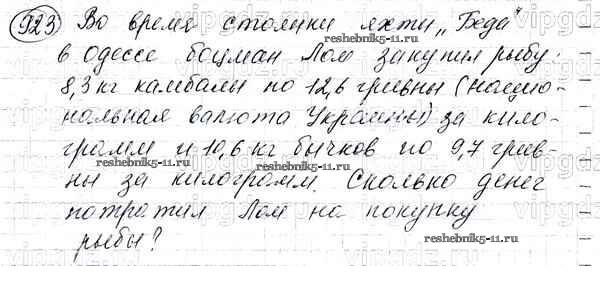 923 Во время стоянки яхты „Беда"
в Одессе боцман Лом закупил рыбу:
8,3 кг камбалы по 12,6 гривны (нацио-
нальная валюта Украины) за кило-
грамм и 10,6 кг бычков по 9,7 грив-
reshebnik5-11.ru
reshebnik5-11.ru
ны за килограмм. Сколько денег
потратил Лом на покупку
рыбы?
reshebnik5-11.ru